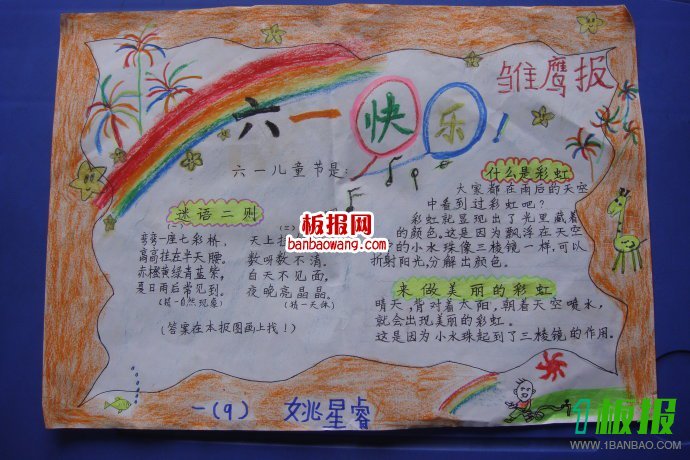 雏鹰报
六一快乐!
六一儿童节是:
谜语二则
(一)
弯弯一座七彩桥,
高高挂在半天腰。
赤橙黄绿青蓝紫,
夏日雨后常见到。
(猜一自然现象)
(二)
天上
数呀数不清。
白天不见面,
夜晚亮晶晶。
(猜一天体)
(答案在本报图画上找!)
什么是彩虹
大家都在雨后的天空
中看到过彩虹吧?
彩虹就显现出了光里藏着
的颜色。这是因为飘浮在天空
的小水珠像三棱镜一样,可以
折射阳光,分解出颜色。
来做美丽的彩虹
晴天,背对着太阳,朝着天空喷水,
就会出现美丽的彩虹。
这是因为小水珠起到了三棱镜的作用。
一(9) 姚星睿
板报网
banbaowang.com
1板报
WWW.1BANBAO.COM